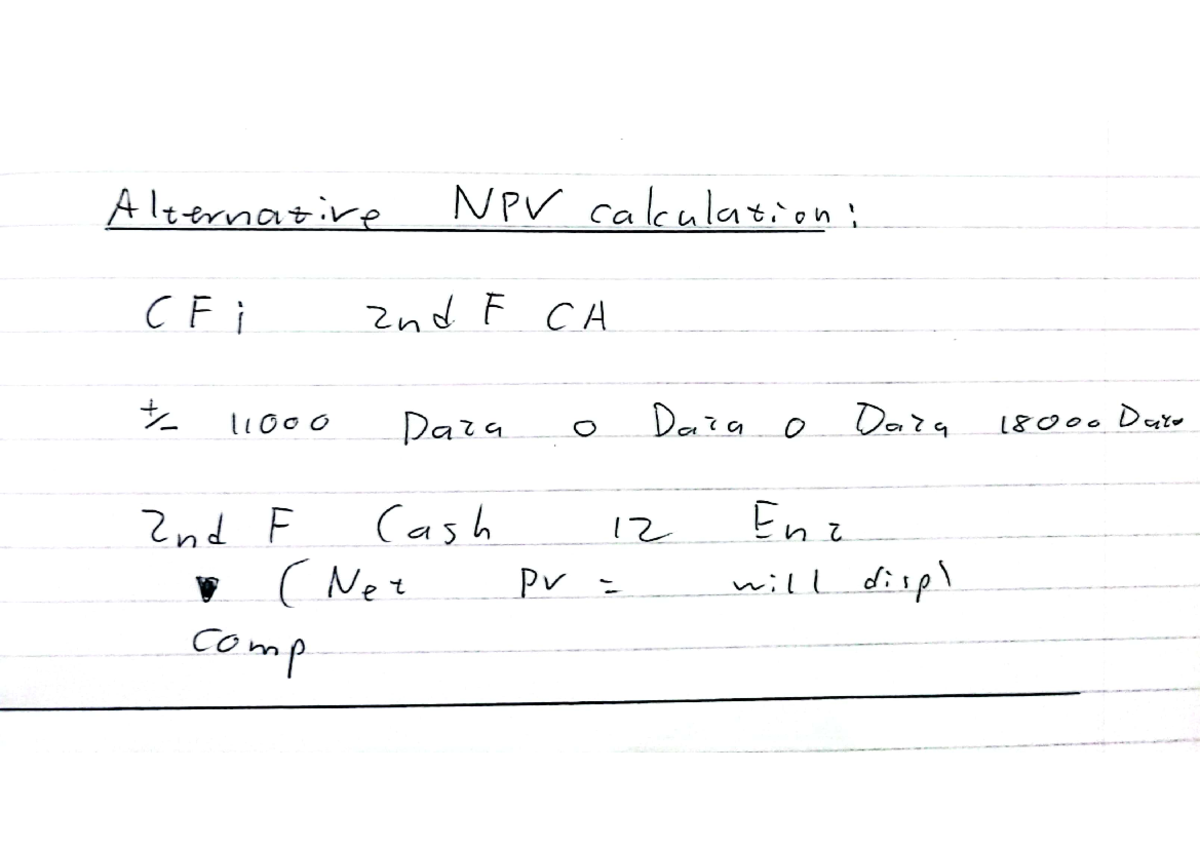 Alternative NPV calculation:
CFi 2nd F CA
+/- 11000 Data 0 Data 0 Data 18000 Data
2nd F Cash 12 Ent
▼ (Net PV = will displ
Comp